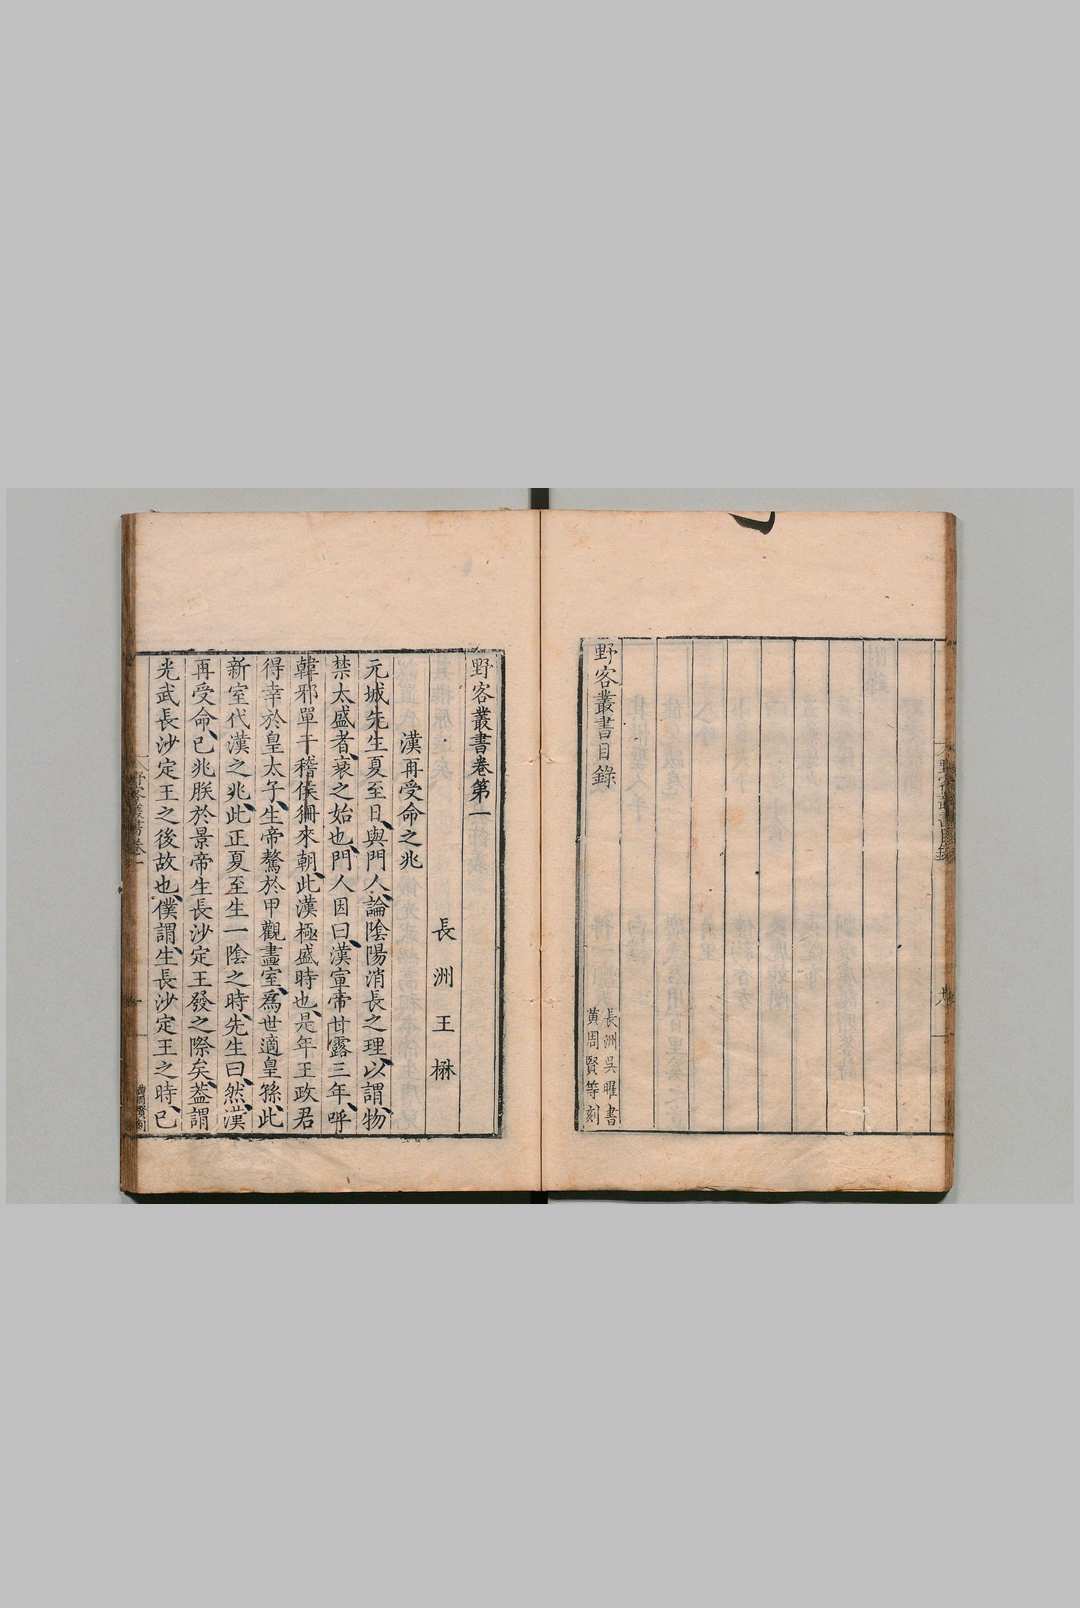 野客叢書目錄
長洲吳曜書
黃周賢等刻
野客叢書卷第一
長洲王楙
漢再受命之兆
元城先生夏至日與門人論陰陽消長之理以謂物
禁太盛者衰之始也門人因曰漢宣帝甘露三年呼
韓邪單于稽侯狦來朝此漢極盛時也是年王政君
得幸於皇太子生帝驁於甲觀畫室為世適皇孫此
新室代漢之兆此正夏至生一陰之時先生曰然漢
再受命已兆朕於景帝生長沙定王發之際矣蓋謂
光武長沙定王之後故也僕謂生長沙定王之時已
野客叢書卷一